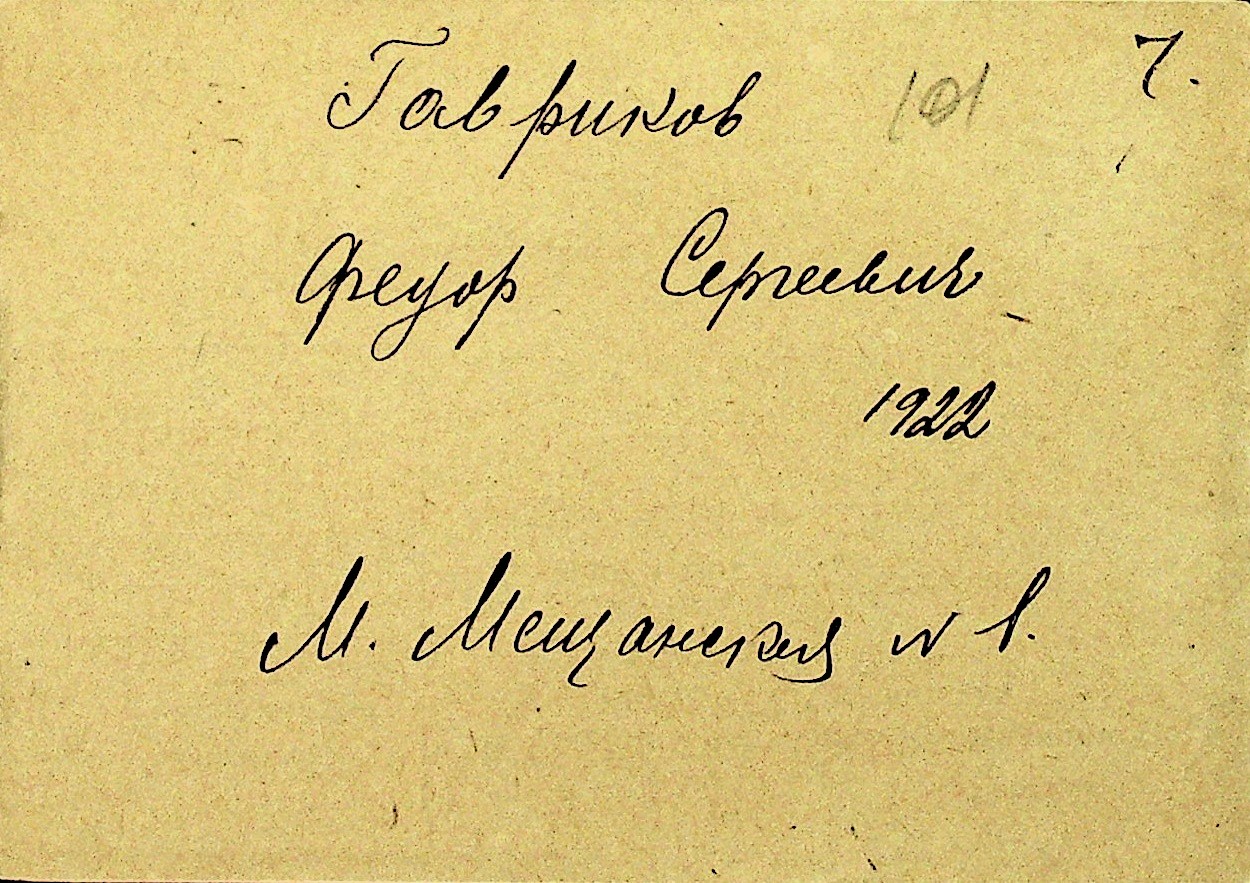 Гавриков 101 7.
Федор Сергеевич
1922
М. Мещанская № 1.